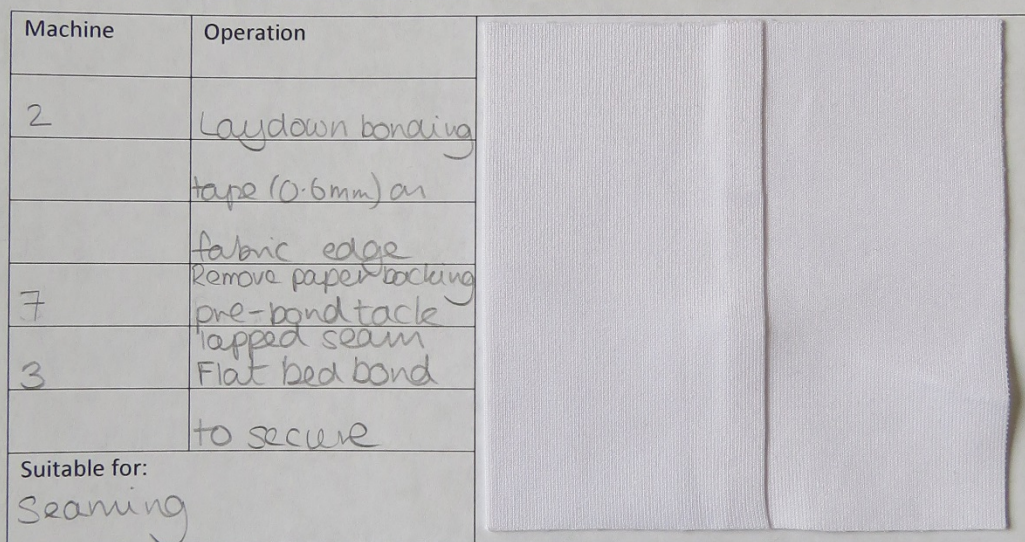 Machine Operation
2 Laydown bonding
tape (0.6mm) on
fabric edge
Remove paper backing
7 pre-bond tack
lapped seam
3 Flat bed bond
to secure
Suitable for:
Seaming